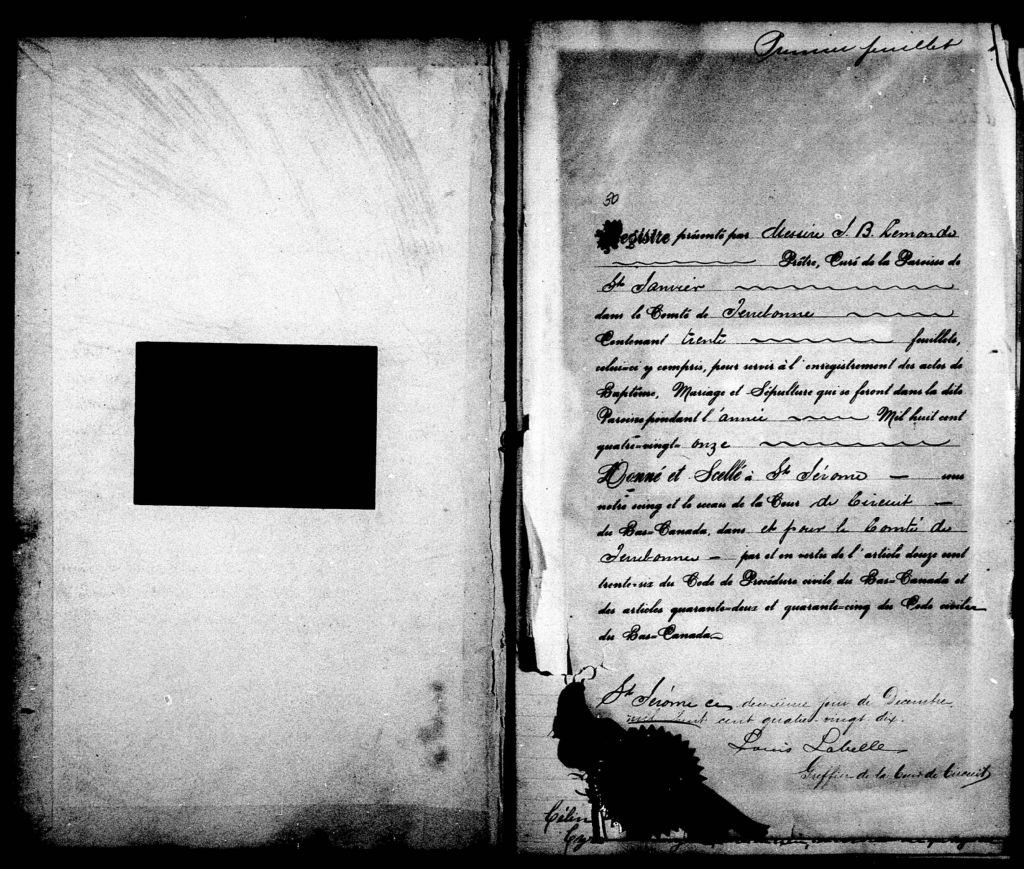 Premier feuillet
30
Registre présenté par Messire J. B. Lemonde
Prêtre, Curé de la Paroisse de
St Janvier
dans le Comté de Terrebonne
Contenant trente feuillets,
celui-ci y compris, pour servir à l'enregistrement des actes de
Baptême, Mariage et Sépulture qui se feront dans la dite
Paroisse pendant l'année Mil huit cent
quatre-vingt-onze
Donné et Scellé à St Jérome – sous
notre seing et le sceau de la Cour de Circuit –
du Bas-Canada, dans et pour le Comté de
Terrebonne – par et en vertu de l'article douze cent
trente-six du Code de Procédure civile du Bas-Canada et
des articles quarante-deux et quarante-cinq du Code civil
du Bas-Canada
St Jérôme ce deuxième jour de Décembre
mil huit cent quatre-vingt-dix.
Louis Labelle
Greffier de la Cour de Circuit
Célin